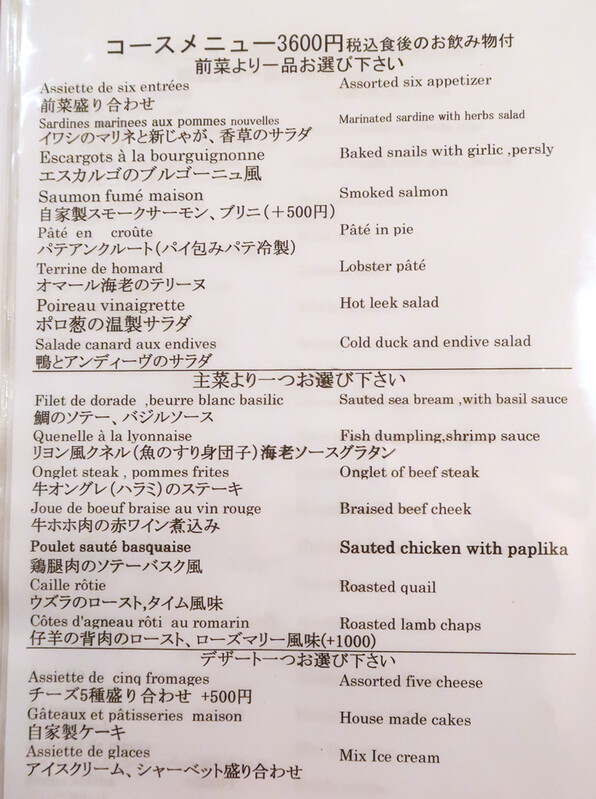 コースメニュー3600円税込食後のお飲み物付
前菜より一品お選び下さい
Assiette de six entrées Assorted six appetizer
前菜盛り合わせ
Sardines marinees aux pommes nouvelles Marinated sardine with herbs salad
イワシのマリネと新じゃが、香草のサラダ
Escargots à la bourguignonne Baked snails with girlic ,persly
エスカルゴのブルゴーニュ風
Saumon fumé maison Smoked salmon
自家製スモークサーモン、ブリニ(+500円)
Pâté en croûte Pâté in pie
パテアンクルート(パイ包みパテ冷製)
Terrine de homard Lobster pâté
オマール海老のテリーヌ
Poireau vinaigrette Hot leek salad
ポロ葱の温製サラダ
Salade canard aux endives Cold duck and endive salad
鴨とアンディーヴのサラダ
主菜より一つお選び下さい
Filet de dorade ,beurre blanc basilic Sauted sea bream ,with basil sauce
鯛のソテー、バジルソース
Quenelle à la lyonnaise Fish dumpling,shrimp sauce
リヨン風クネル(魚のすり身団子)海老ソースグラタン
Onglet steak , pommes frites Onglet of beef steak
牛オングレ(ハラミ)のステーキ
Joue de boeuf braise au vin rouge Braised beef cheek
牛ホホ肉の赤ワイン煮込み
Poulet sauté basquaise Sauted chicken with paplika
鶏腿肉のソテーバスク風
Caille rôtie Roasted quail
ウズラのロースト,タイム風味
Côtes d'agneau rôti au romarin Roasted lamb chaps
仔羊の背肉のロースト、ローズマリー風味(+1000)
デザート一つお選び下さい
Assiette de cinq fromages Assorted five cheese
チーズ5種盛り合わせ +500円
Gâteaux et pâtisseries maison House made cakes
自家製ケーキ
Assiette de glaces Mix Ice cream
アイスクリーム、シャーベット盛り合わせ